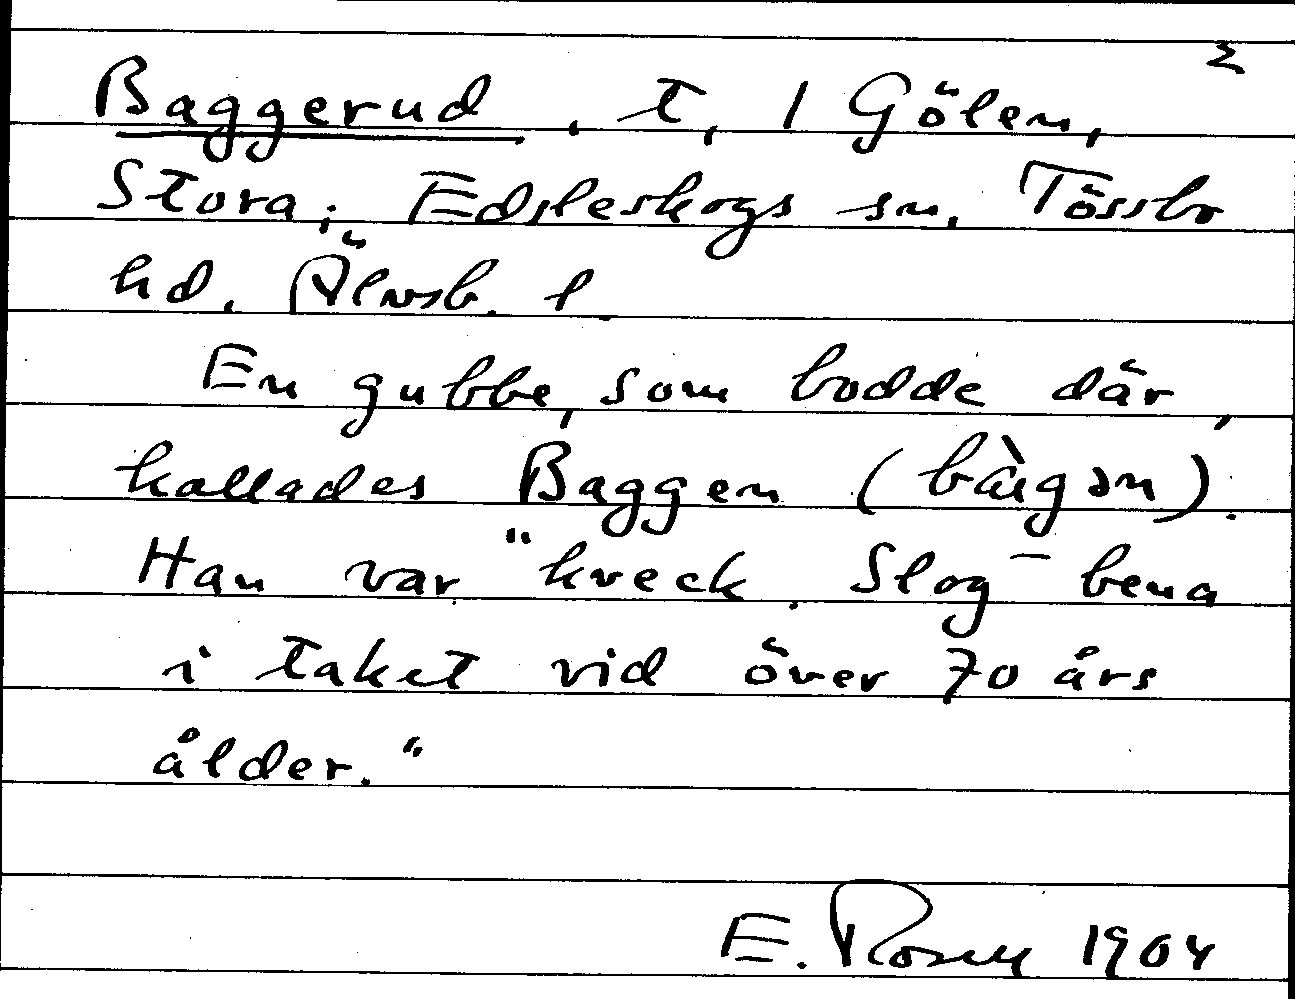 2
Baggerud, t, 1 Gölen,
Stora; Edsleskogs sn. Tössbo
hd. Älvsb. l.
En gubbe, som bodde där,
kallades Baggen (bàgən).
Han var "kveck. Slog - bena
i taket vid över 70 års
ålder."
E. Rosell 1904